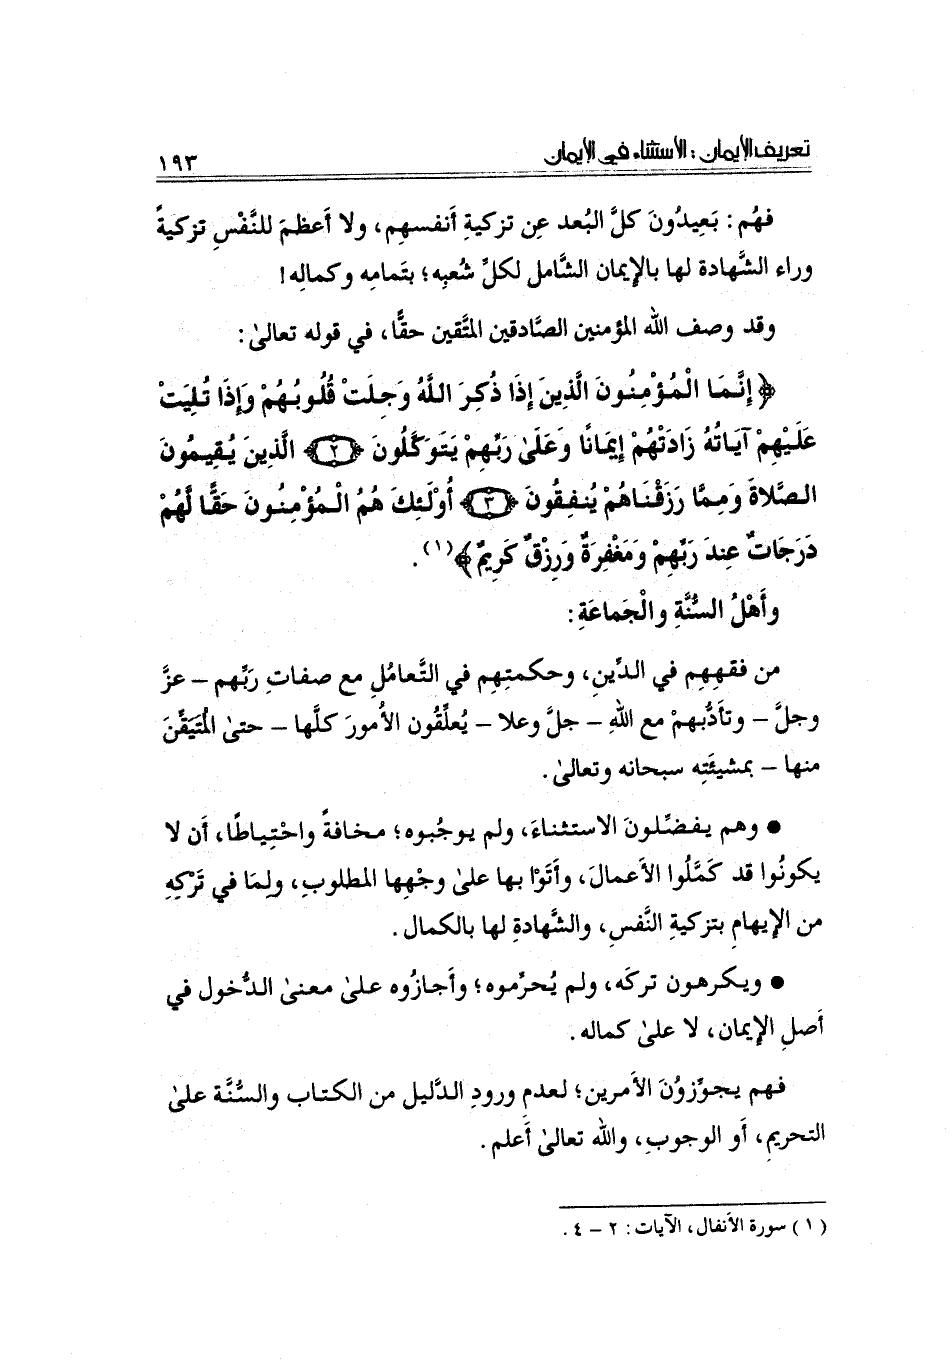 تعريف الإيمان : الاستثناء في الإيمان
١٩٣
فهُم : بَعِيدُونَ كلَّ البُعد عن تزكيةِ أنفسهِم، ولا أعظمَ للنَّفْسِ تزكيةً
وراء الشَّهادة لها بالإيمان الشَّامل لكلِّ شُعبِه؛ بتَمامِه وكمالِه!
وقد وصف الله المؤمنين الصَّادقين المتَّقين حقًّا، في قوله تعالىٰ :
﴿ إِنَّمَا الْمُؤْمِنُونَ الَّذِينَ إِذَا ذُكِرَ اللَّهُ وَجِلَتْ قُلُوبُهُمْ وَإِذَا تُلِيَتْ
عَلَيْهِمْ آيَاتُهُ زَادَتْهُمْ إِيمَانًا وَعَلَىٰ رَبِّهِمْ يَتَوَكَّلُونَ ﴿٢﴾ الَّذِينَ يُقِيمُونَ
الصَّلاةَ وَمِمَّا رَزَقْنَاهُمْ يُنفِقُونَ ﴿٣﴾ أُوْلَئِكَ هُمُ الْمُؤْمِنُونَ حَقًّا لَّهُمْ
دَرَجَاتٌ عِندَ رَبِّهِمْ وَمَغْفِرَةٌ وَرِزْقٌ كَرِيمٌ ﴾(١).
وأَهْلُ السُّنَّةِ والْجَماعَةِ :
من فقهِهِم في الدِّينِ، وحكمتِهِم في التَّعامُلِ مع صفاتِ رَبِّهم – عزَّ
وجلَّ – وتأدُّبهمْ مع اللهِ – جلَّ وعلا – يُعلِّقُون الأُمورَ كلَّها – حتىٰ المُتَيَقَّنَ
منها – بمشيئَتِه سبحانه وتعالىٰ .
● وهم يفضِّلونَ الاستثناءَ، ولم يوجُبوه؛ مخافةً واحْتِياطًا، أن لا
يكونُوا قد كَمَّلُوا الأعمالَ، وأتَوْا بها علىٰ وجْهِها المطلوبِ، ولِمَا في تَرْكِهِ
من الإيهامِ بتزكيةِ النَّفسِ، والشَّهادةِ لها بالكمال .
● ويكرهون تركَه، ولم يُحرِّموه؛ وأجازُوه علىٰ معنىٰ الدُّخول في
أصلِ الإيمان، لا علىٰ كماله .
فهم يجوِّزوُنَ الأمرين؛ لعدمِ ورودِ الدَّليل من الكتاب والسُّنَّة علىٰ
التحريمِ، أو الوجوبِ، والله تعالىٰ أعلم .
( ١ ) سورة الأنفال، الآيات : ٢ – ٤ .